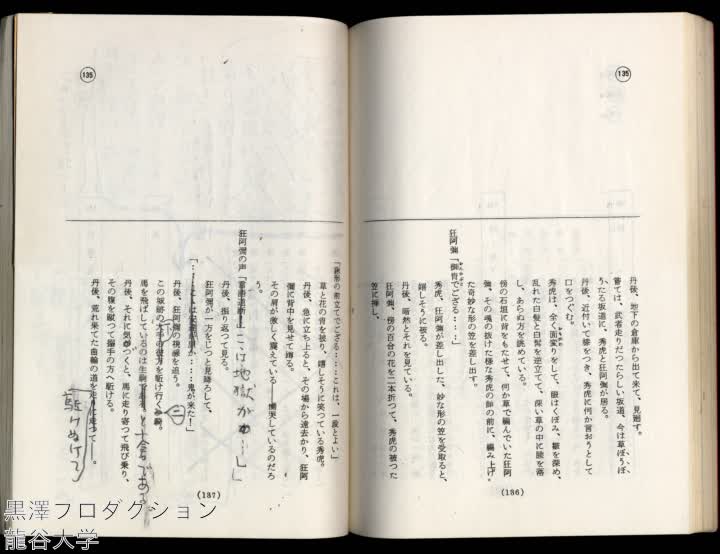 135
丹後、地下の倉庫から出て来て、見廻す。
嘗ては、武者走りだったらしい坂道、今は草ぼうぼ
うたる坂道に、秀虎と狂阿彌が居る。
丹後、近付いて膝をつき、秀虎に何か言おうとして
口をつぐむ。
秀虎は、全く面変りをして、眼はくぼみ、皺を深め、
乱れた白髪と白髯を逆立てて、深い草の中に膝を落
し、あらぬ方を眺めている。
傍の石垣に背をもたせて、何か草で編んでいた狂阿
彌、その魂の抜けた様な秀虎の姿の前に、編み上げ
た奇妙な形の笠を差し出す。
狂阿彌「御冑でござる……」
秀虎、狂阿彌が差し出した、妙な形の笠を受取ると、
嬉しそうに被る。
丹後、暗然とそれを見ている。
狂阿彌、傍の百合の花を二本折って、秀虎の被った
笠に挿し、
(186)
135
「鍬形の前立てでござる……これは、一段とよい」
草と花の冑を被り、嬉しそうに笑っている秀虎。
丹後、急に立ち上ると、その場から遠去かり、狂阿
彌に背中を見せて蹲る。
その肩が激しく震えている――慟哭しているのだろ
う。
狂阿彌の声「言語道断！
ここは地獄か
丹後、振り返って見る。
狂阿彌が一方をじっと見降ろして、
鬼が来た！」
丹後、狂阿彌の視線を追う。
この城跡の大手の彼方を駈け行く
馬を飛ばしているのは生駒
丹後、それに気がつくと、馬に走り寄って飛び乗り、
その腹を蹴って搦手の方へ駈ける。
丹後、荒れ果てた曲輪の道を
駈けぬけて
(187)
黒澤プロダクション
龍谷大学